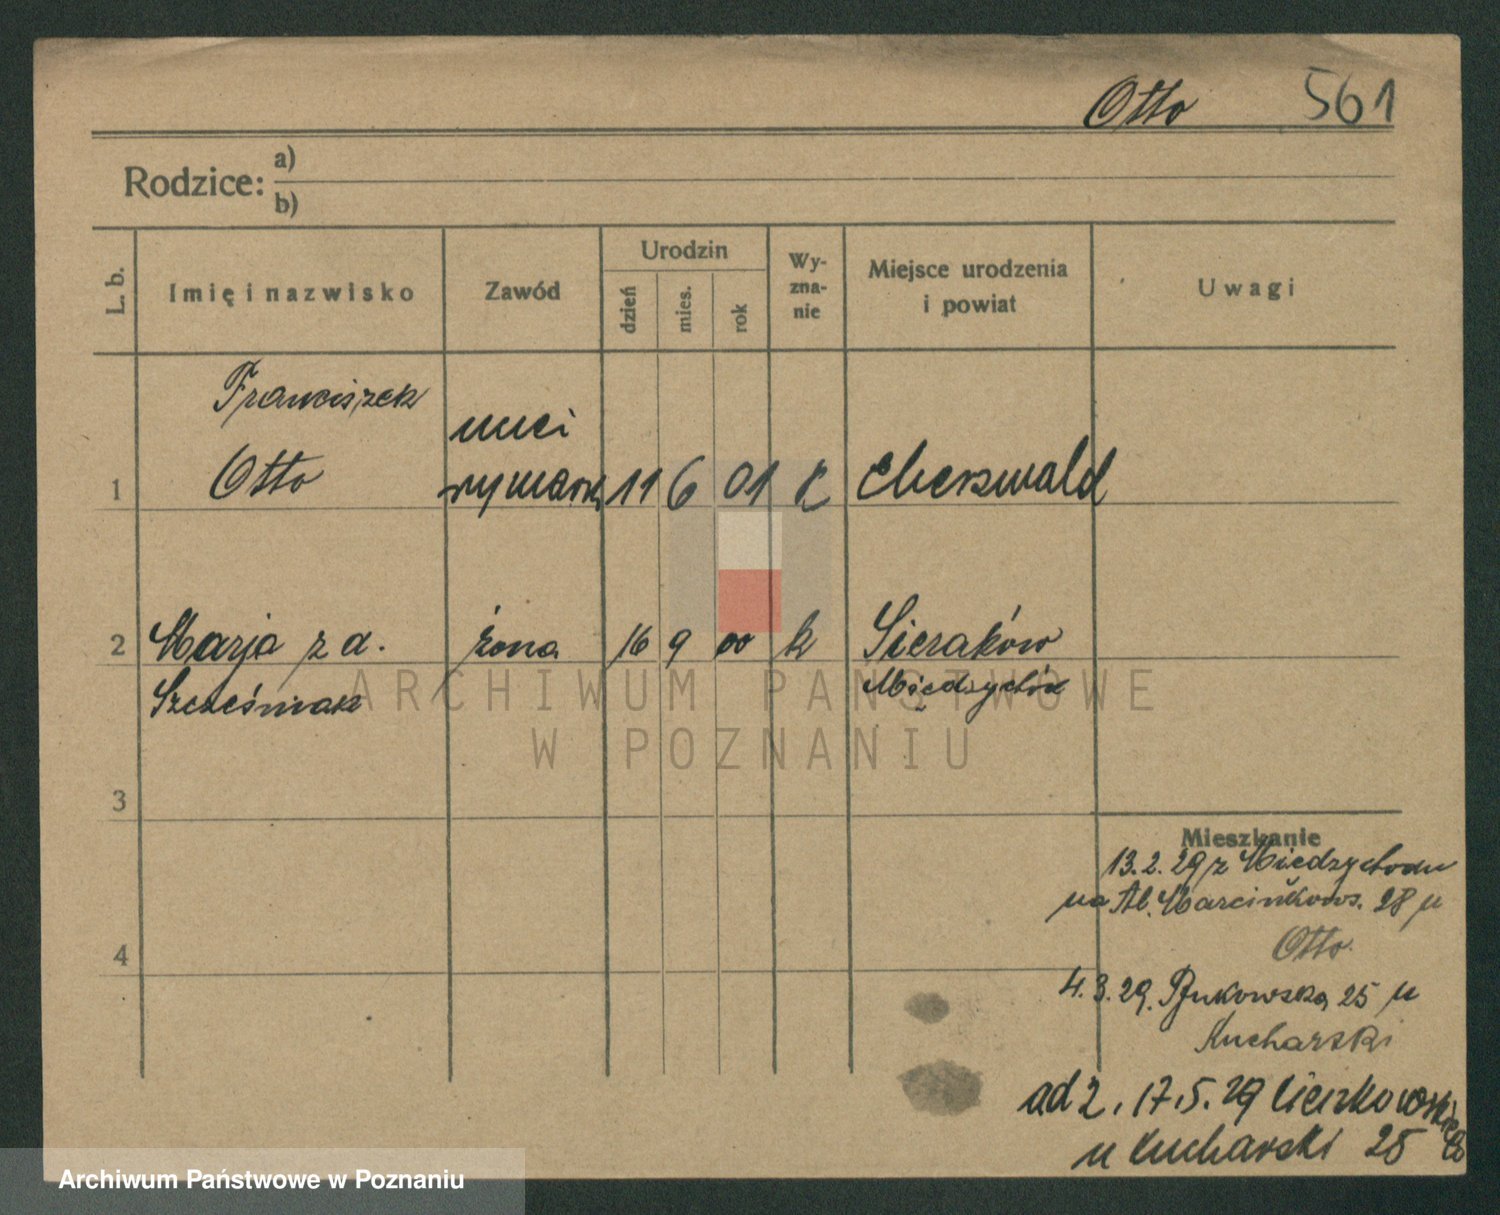 Otto 561
Rodzice: a)
b)
L. b. Imię i nazwisko Zawód Urodzin dzień mies. rok Wy-zna-nie Miejsce urodzenia i powiat Uwagi
Franciszek
Otto
1 rymarski 11 6 01 k Eberswald
2 Marja z d. żona 16 9 00 k Sieraków
Szcześniak Międzychód
ARCHIWUM PAŃSTWOWE
W POZNANIU
3
Mieszkanie
13.2.29 z Międzychodu
na Al. Marcinkows. 28 u
Otto
4
4.3.29. Bukowska 25 u
Kucharski
ad 2. 17.5.29
u Kucharski 25
Archiwum Państwowe w Poznaniu